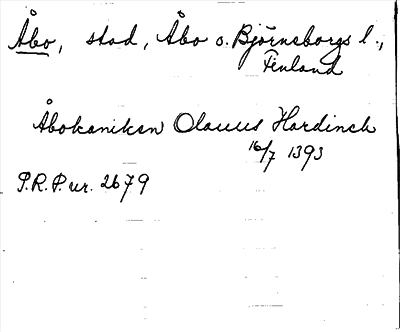 Åbo, stad, Åbo o. Björneborgs l.,
Finland
Åbokaniken Olauus Hardinck
16/7 1393
P.R.P. nr. 2679